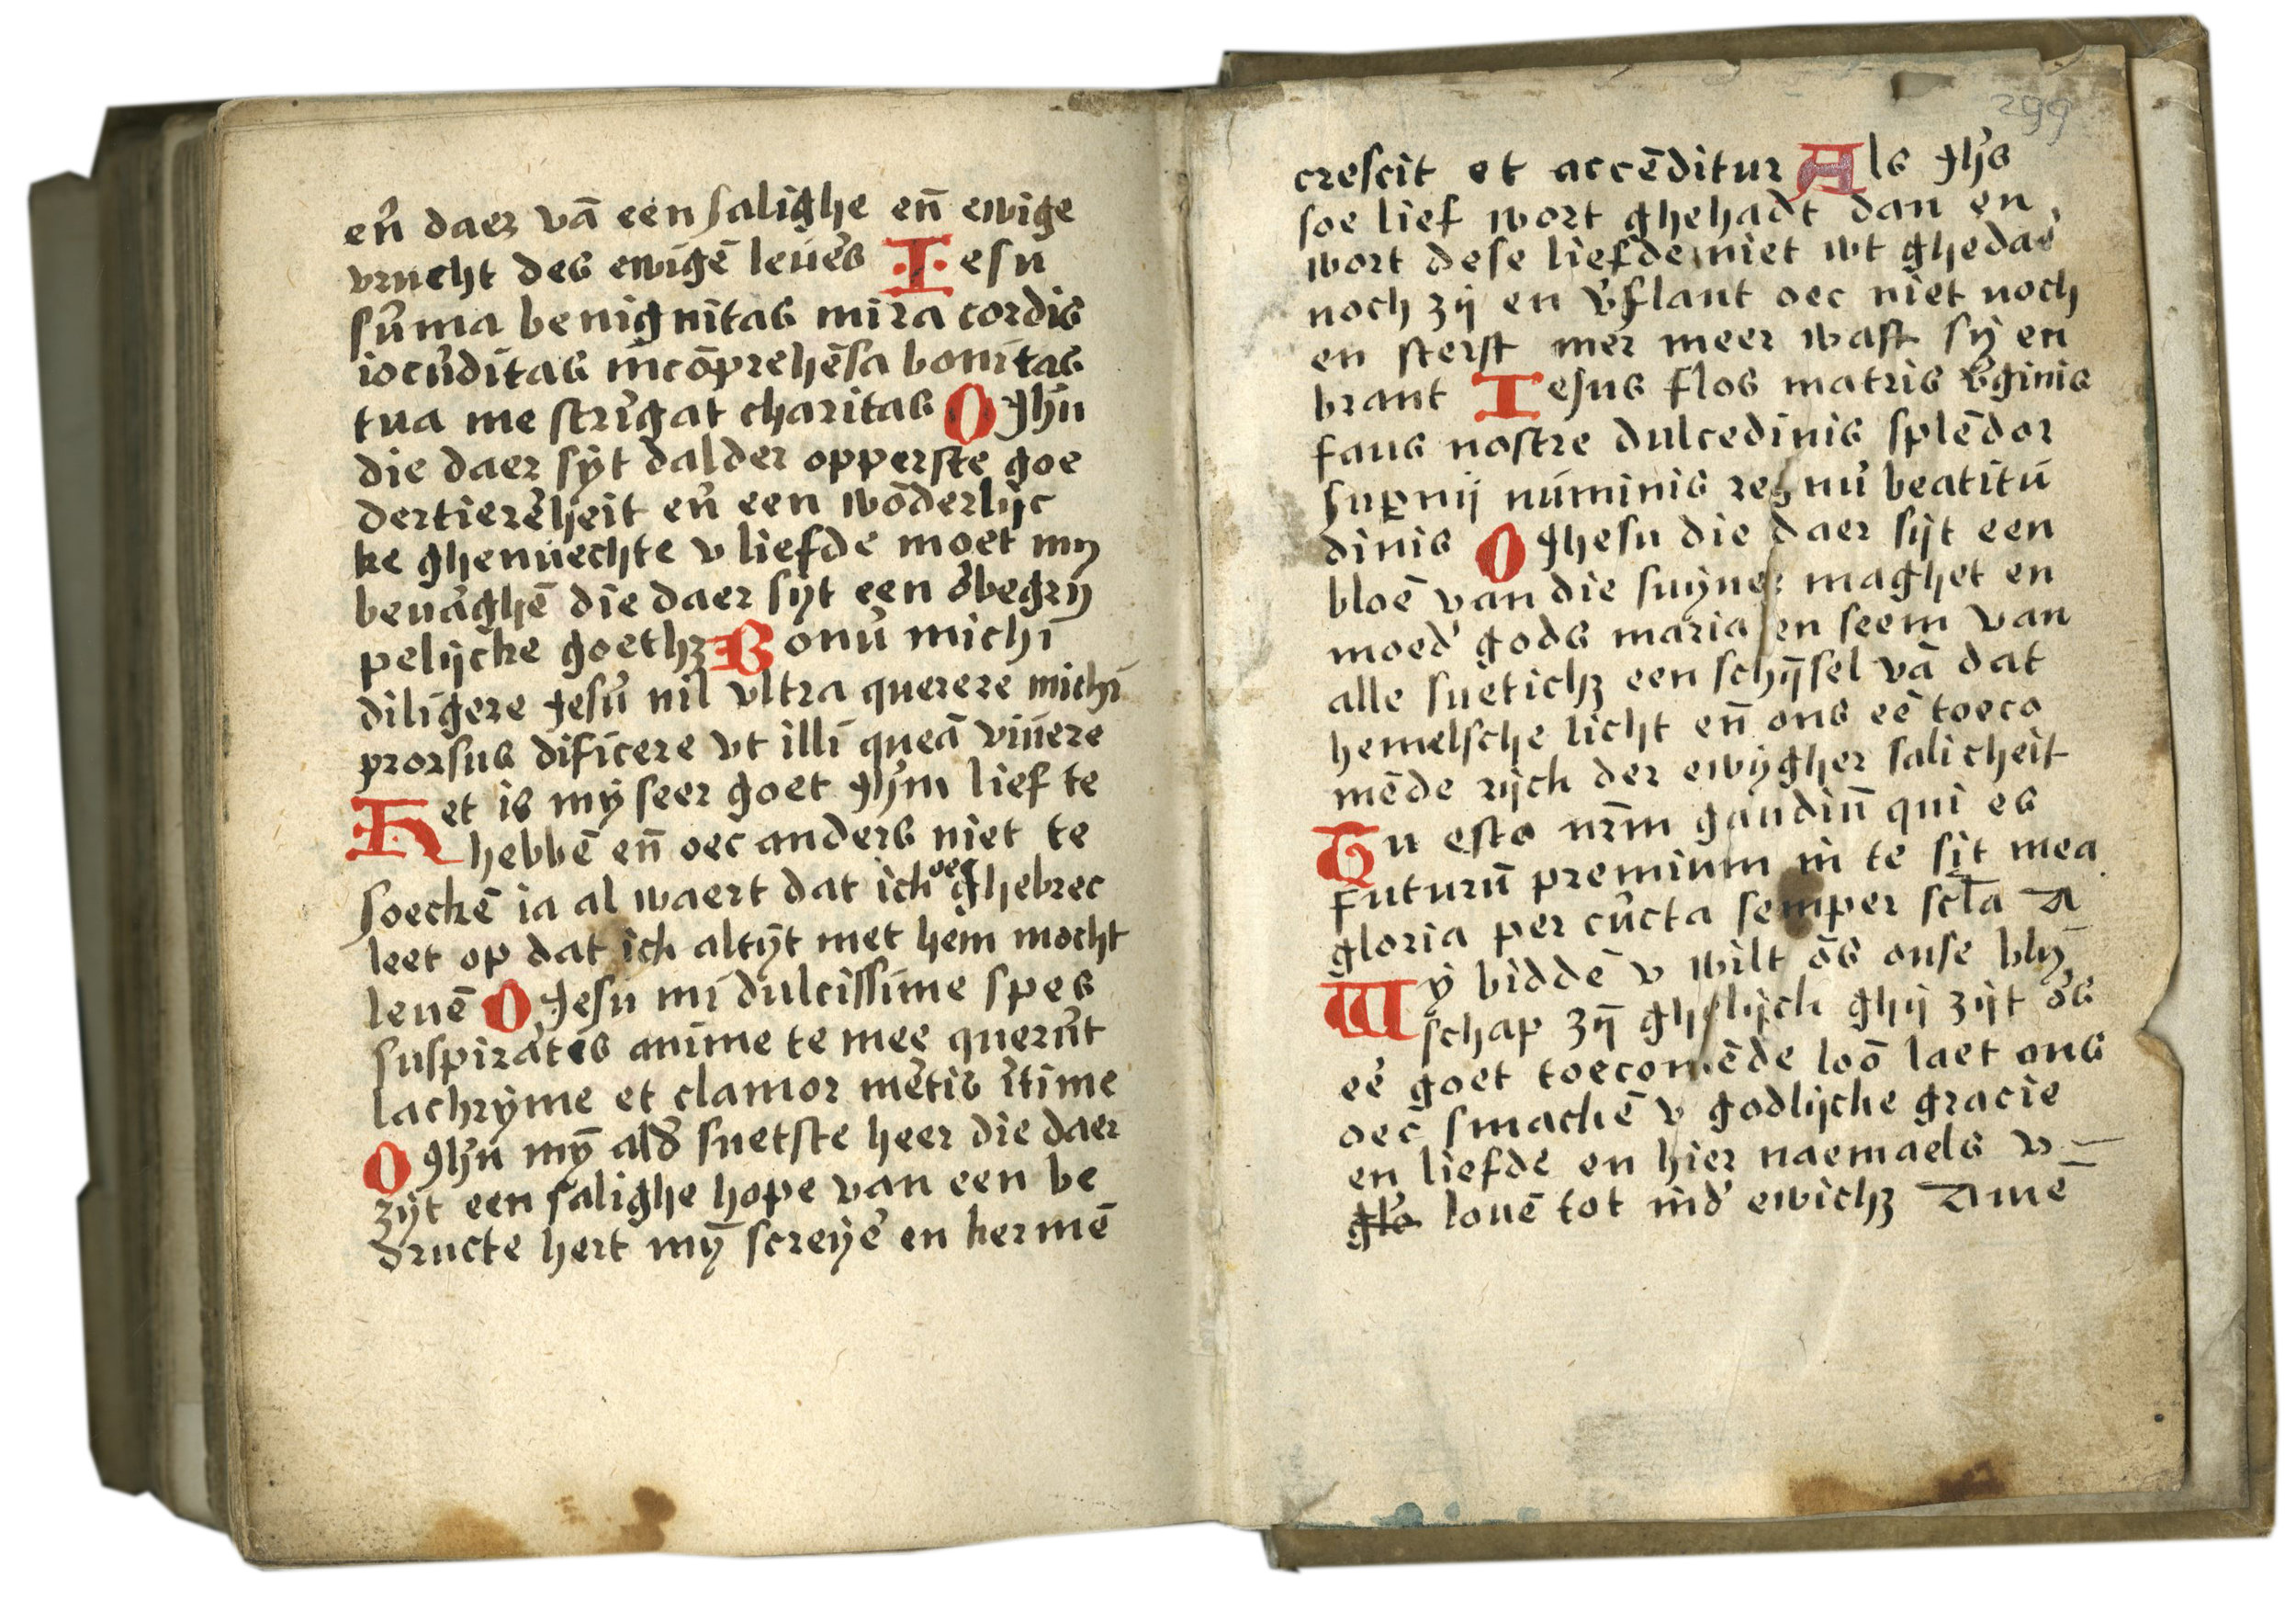 en̄ daer vā een salighe en̄ ewige
vrucht des ewigē leuēs Iesu
sūma benignitas mira cordis
iocūditas incōprehēsa bonitas
tua me strīgat charitas O Jhū
die daer sijt dalder opperste goe
dertierēheit en̄ een wōderlijc
ke ghenuechte v liefde moet my
beuāghē die daer sijt een ōbegrij
pelijcke goethz Bonū michi
diligere Jesū nil vltra querere michi
prorsus dificere vt illi queā viuere
Het is mij seer goet Jhm̄ lief te
hebbē en̄ oec anders niet te
soeckē ia al waert dat ich oec ghebrec
leet op dat ich altijt met hem mocht
leuē O Jesu mi dulcissime spes
suspirātis anime te mee querūt
lachryme et clamor mētis ītime
O Jhū mȳ ald' suetste heer die daer
zijt een salighe hope van een be
dructe hert mȳ screijē en kermē
299
crescit et accēditur Als Jhs̄
soe lief wort ghehadt dan en
wort dese liefde niet wt ghedaē
noch zij en v'flaut oec niet noch
en sterft mer meer wast sij en
brant Iesus flos matris v'ginis
faus nostre dulcedinis splēdor
sup̱nij numinis regnū beatitu
dinis O Jhesu die daer sijt een
bloē van die suijuer maghet en
moed' gods maria en seem van
alle suetichz een schijsel vā dat
hemelsche licht en̄ ons eē toeco
mēde rijch der ewijgher salicheit
Tu esto nr̄m gaudiū qui es
futurū premium in te sit mea
gloria per cūcta semper scl̄a A
Wij biddē v wilt ōs onse blij
schap zij̄ ghelijch ghij zijt ōs
eē goet toecomēde loō laet ons
oec smackē v godlijcke gracie
en liefde en hier naemaels v
glo louē tot ind' ewichz Amē